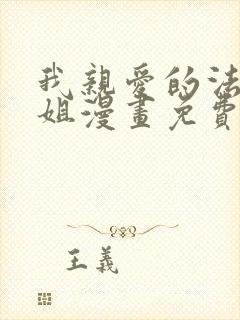 我親愛的法
姐漫畫免費
王義